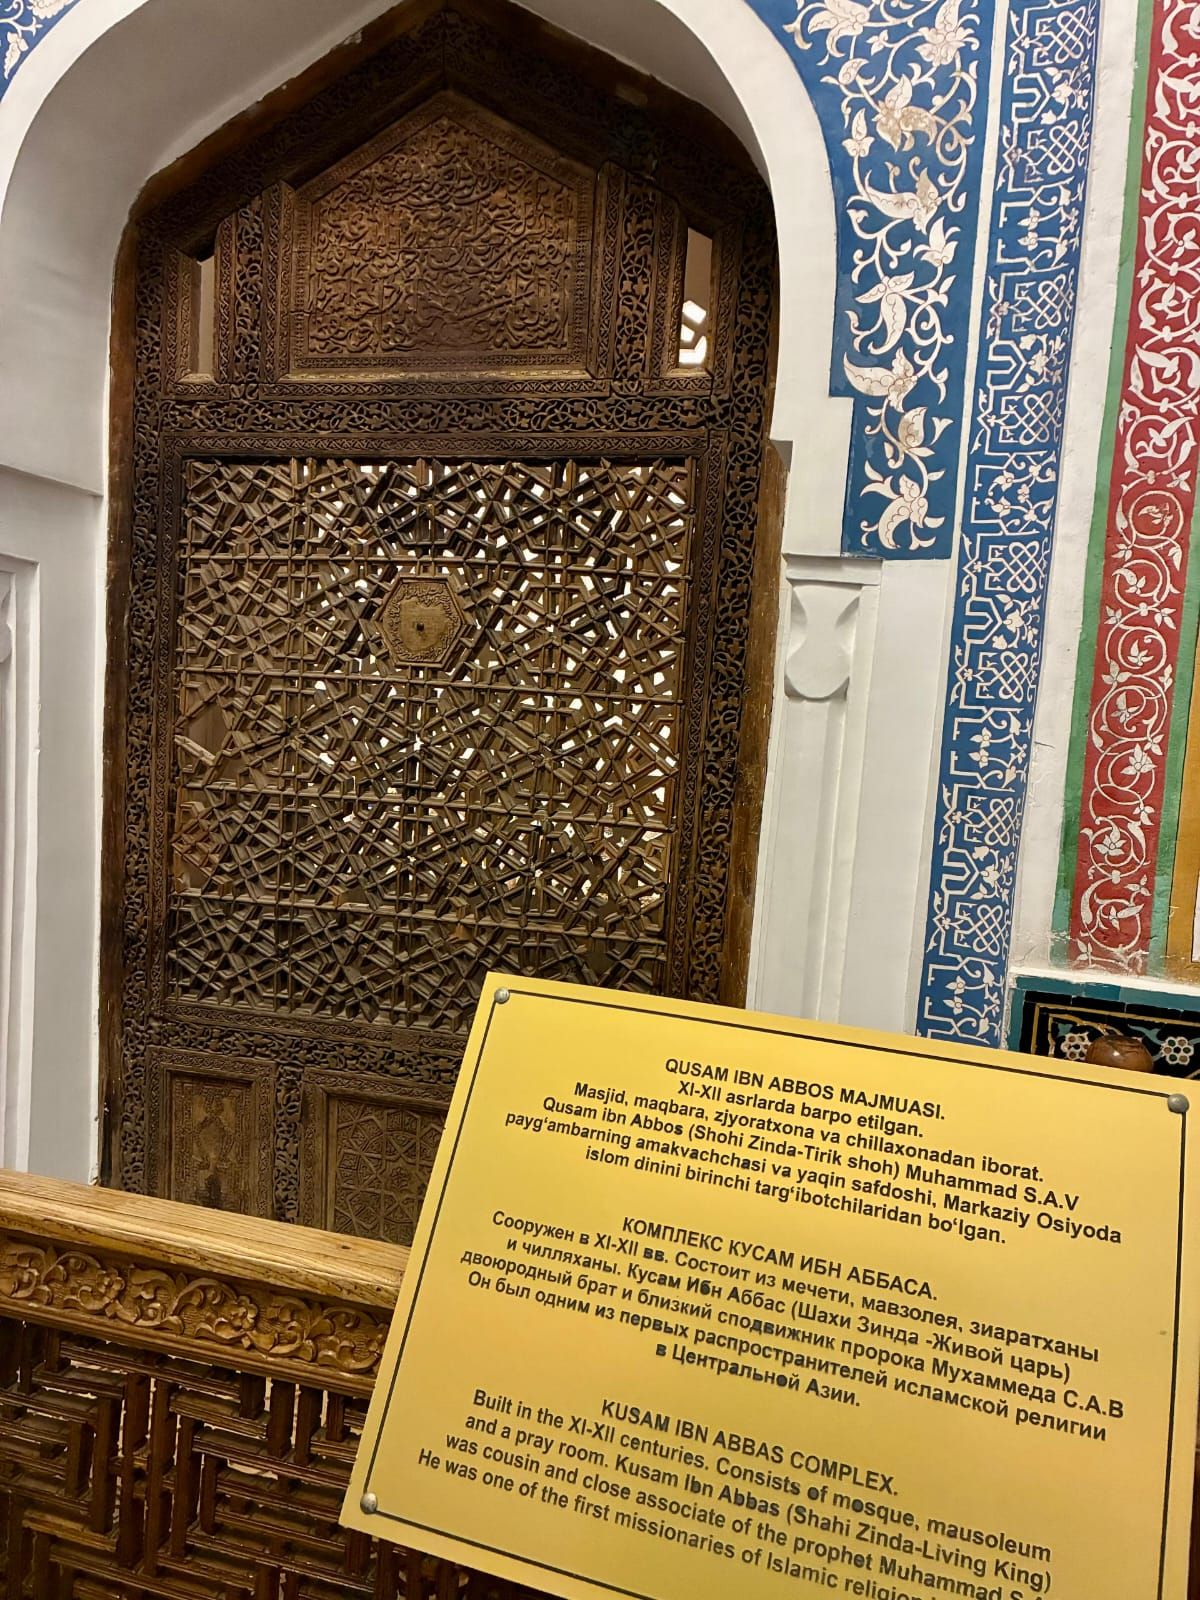 QUSAM IBN ABBOS MAJMUASI.
XI-XII asrlarda barpo etilgan.
Masjid, maqbara, zjyoratxona va chillaxonadan iborat.
Qusam ibn Abbos (Shohi Zinda-Tirik shoh) Muhammad S.A.V
payg‘ambarning amakvachchasi va yaqin safdoshi, Markaziy Osiyoda
islom dinini birinchi targ‘ibotchilaridan bo‘lgan.
КОМПЛЕКС КУСАМ ИБН АББАСА.
Сооружен в XI-XII вв. Состоит из мечети, мавзолея, зиаратханы
и чилляханы. Кусам Ибн Аббас (Шахи Зинда -Живой царь)
двоюродный брат и близкий сподвижник пророка Мухаммеда С.А.В
Он был одним из первых распространителей исламской религии
в Центральной Азии.
KUSAM IBN ABBAS COMPLEX.
Built in the XI-XII centuries. Consists of mosque, mausoleum
and a pray room. Kusam Ibn Abbas (Shahi Zinda-Living King)
was cousin and close associate of the prophet Muhammad S.
He was one of the first missionaries of Islamic religion